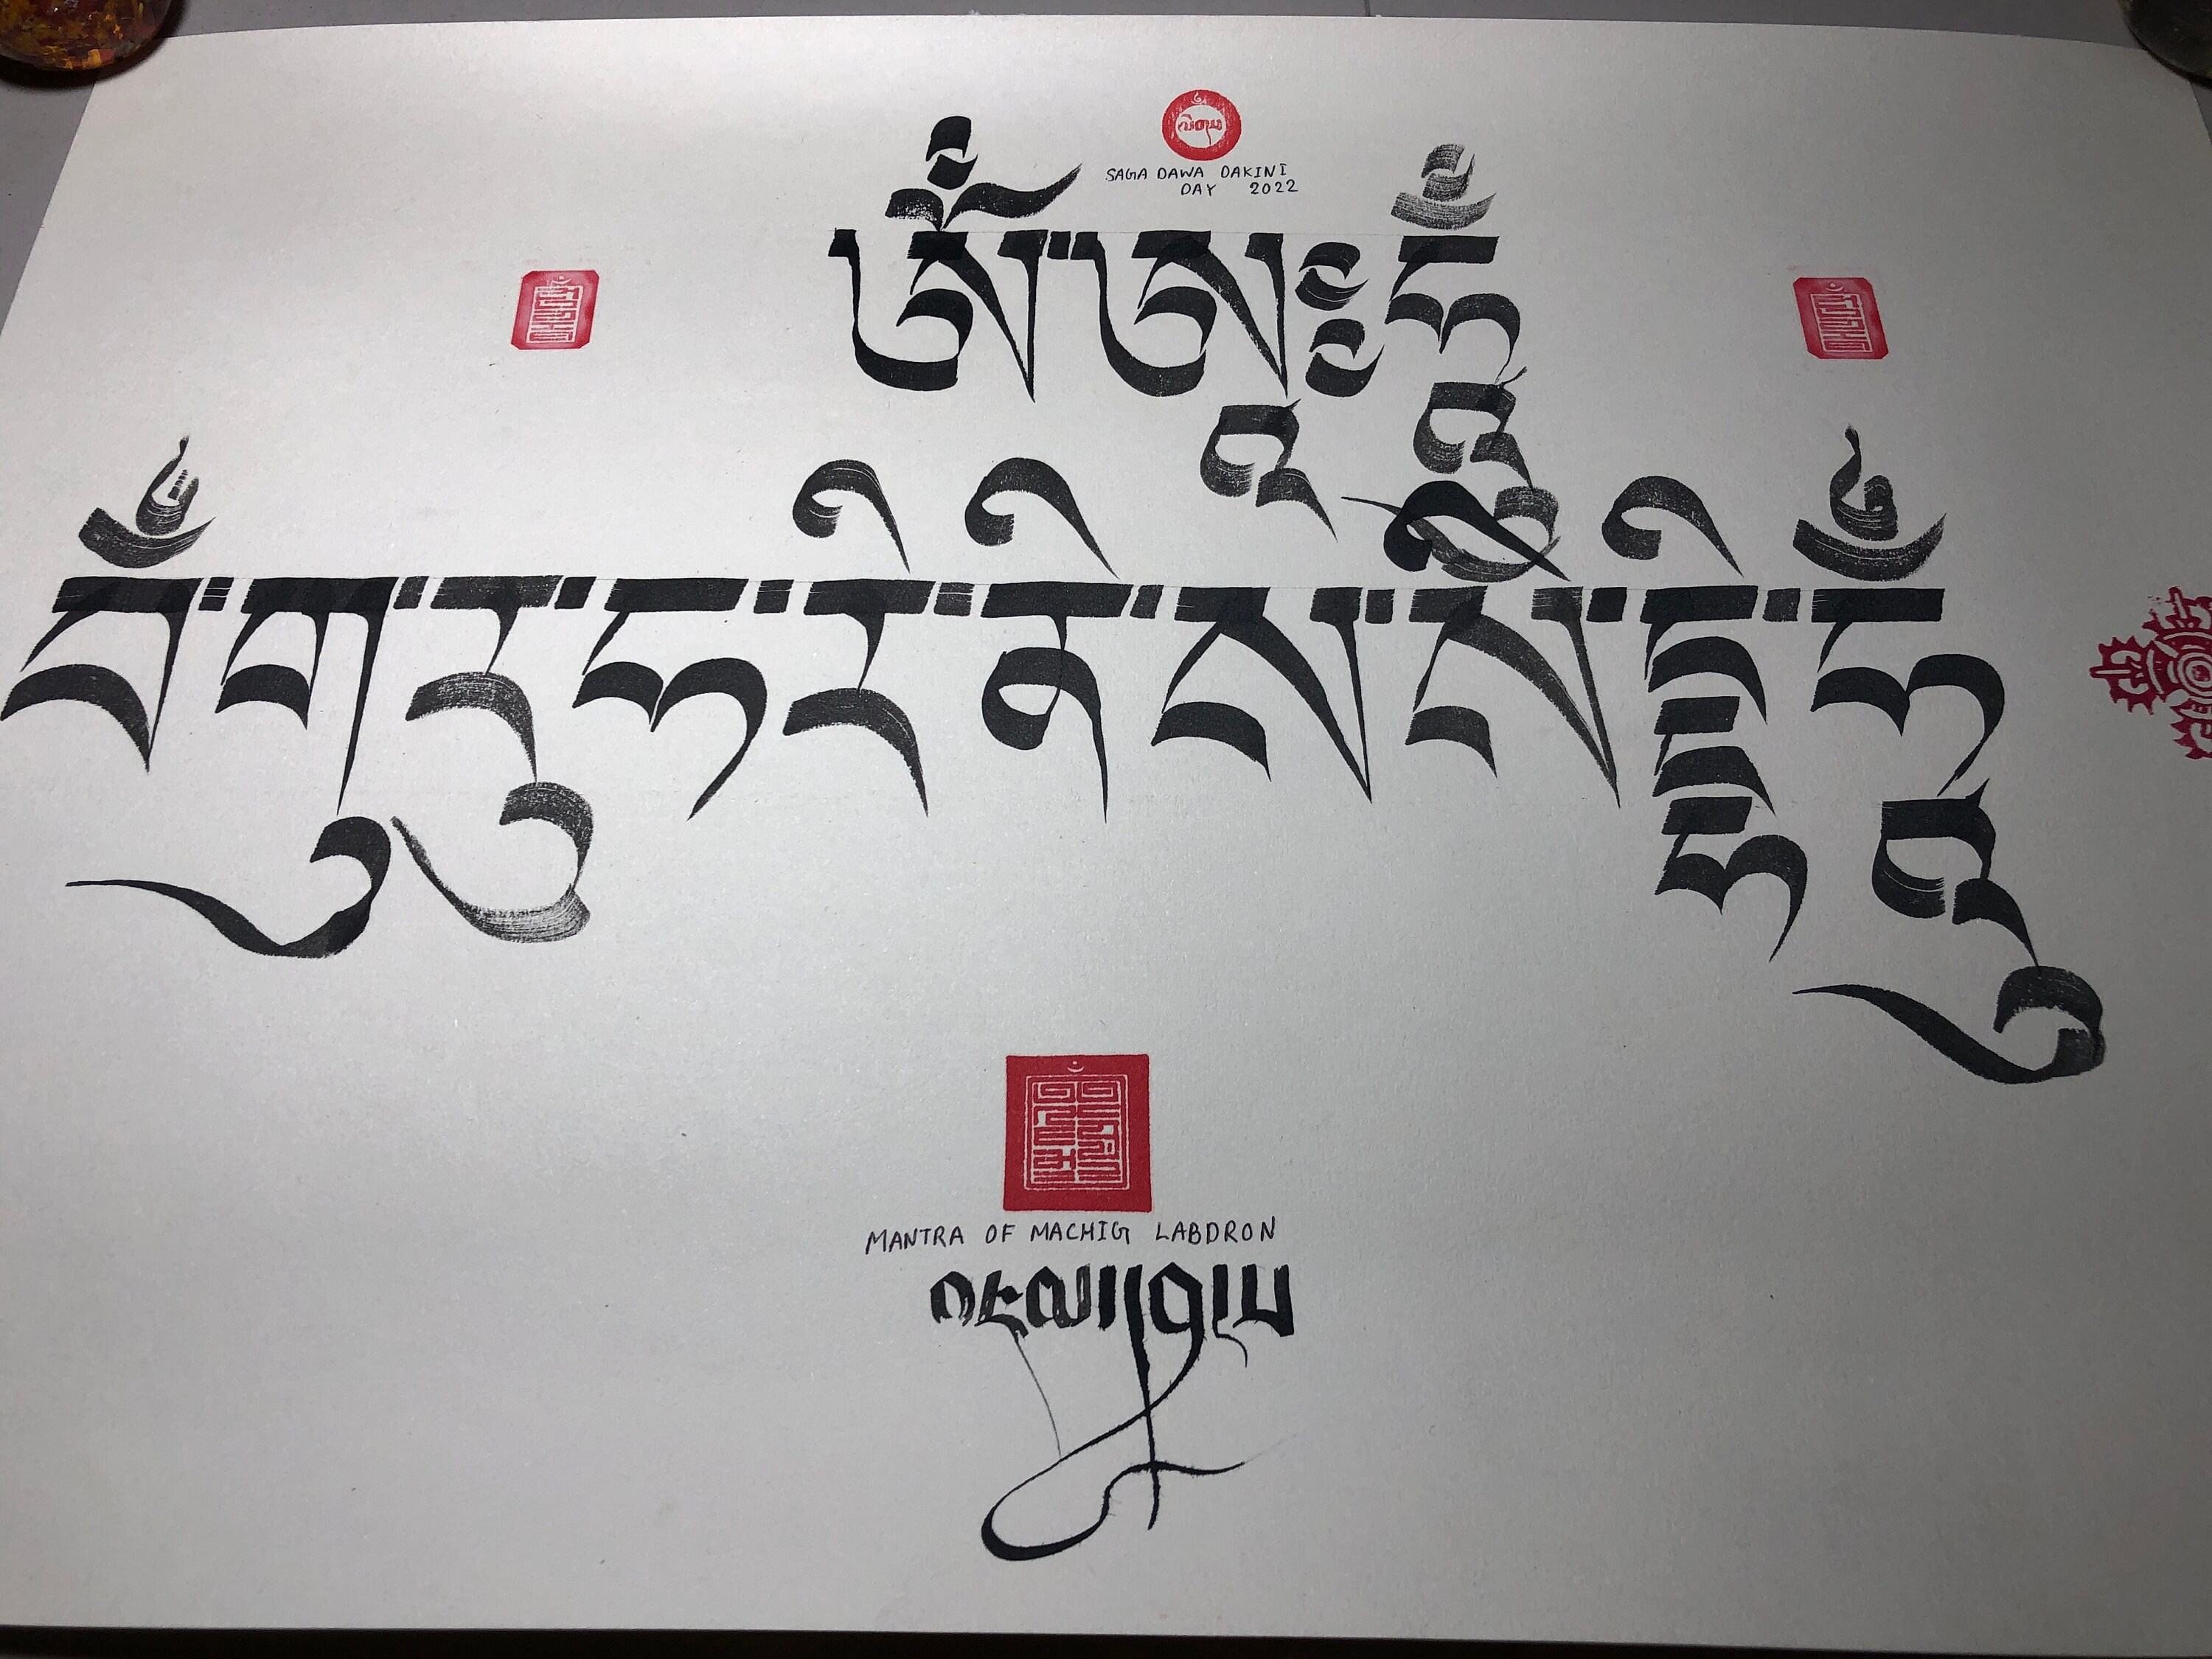 SAGA DAWA DAKINI
DAY 2022
ཨོྃ་ཨཱཿཧཱུྃ
བྃ་གུ་རུ་ཧ་རི་ནི་ས་སི་དྡྷི་ཧཱུྃ
MANTRA OF MACHIG LABDRON